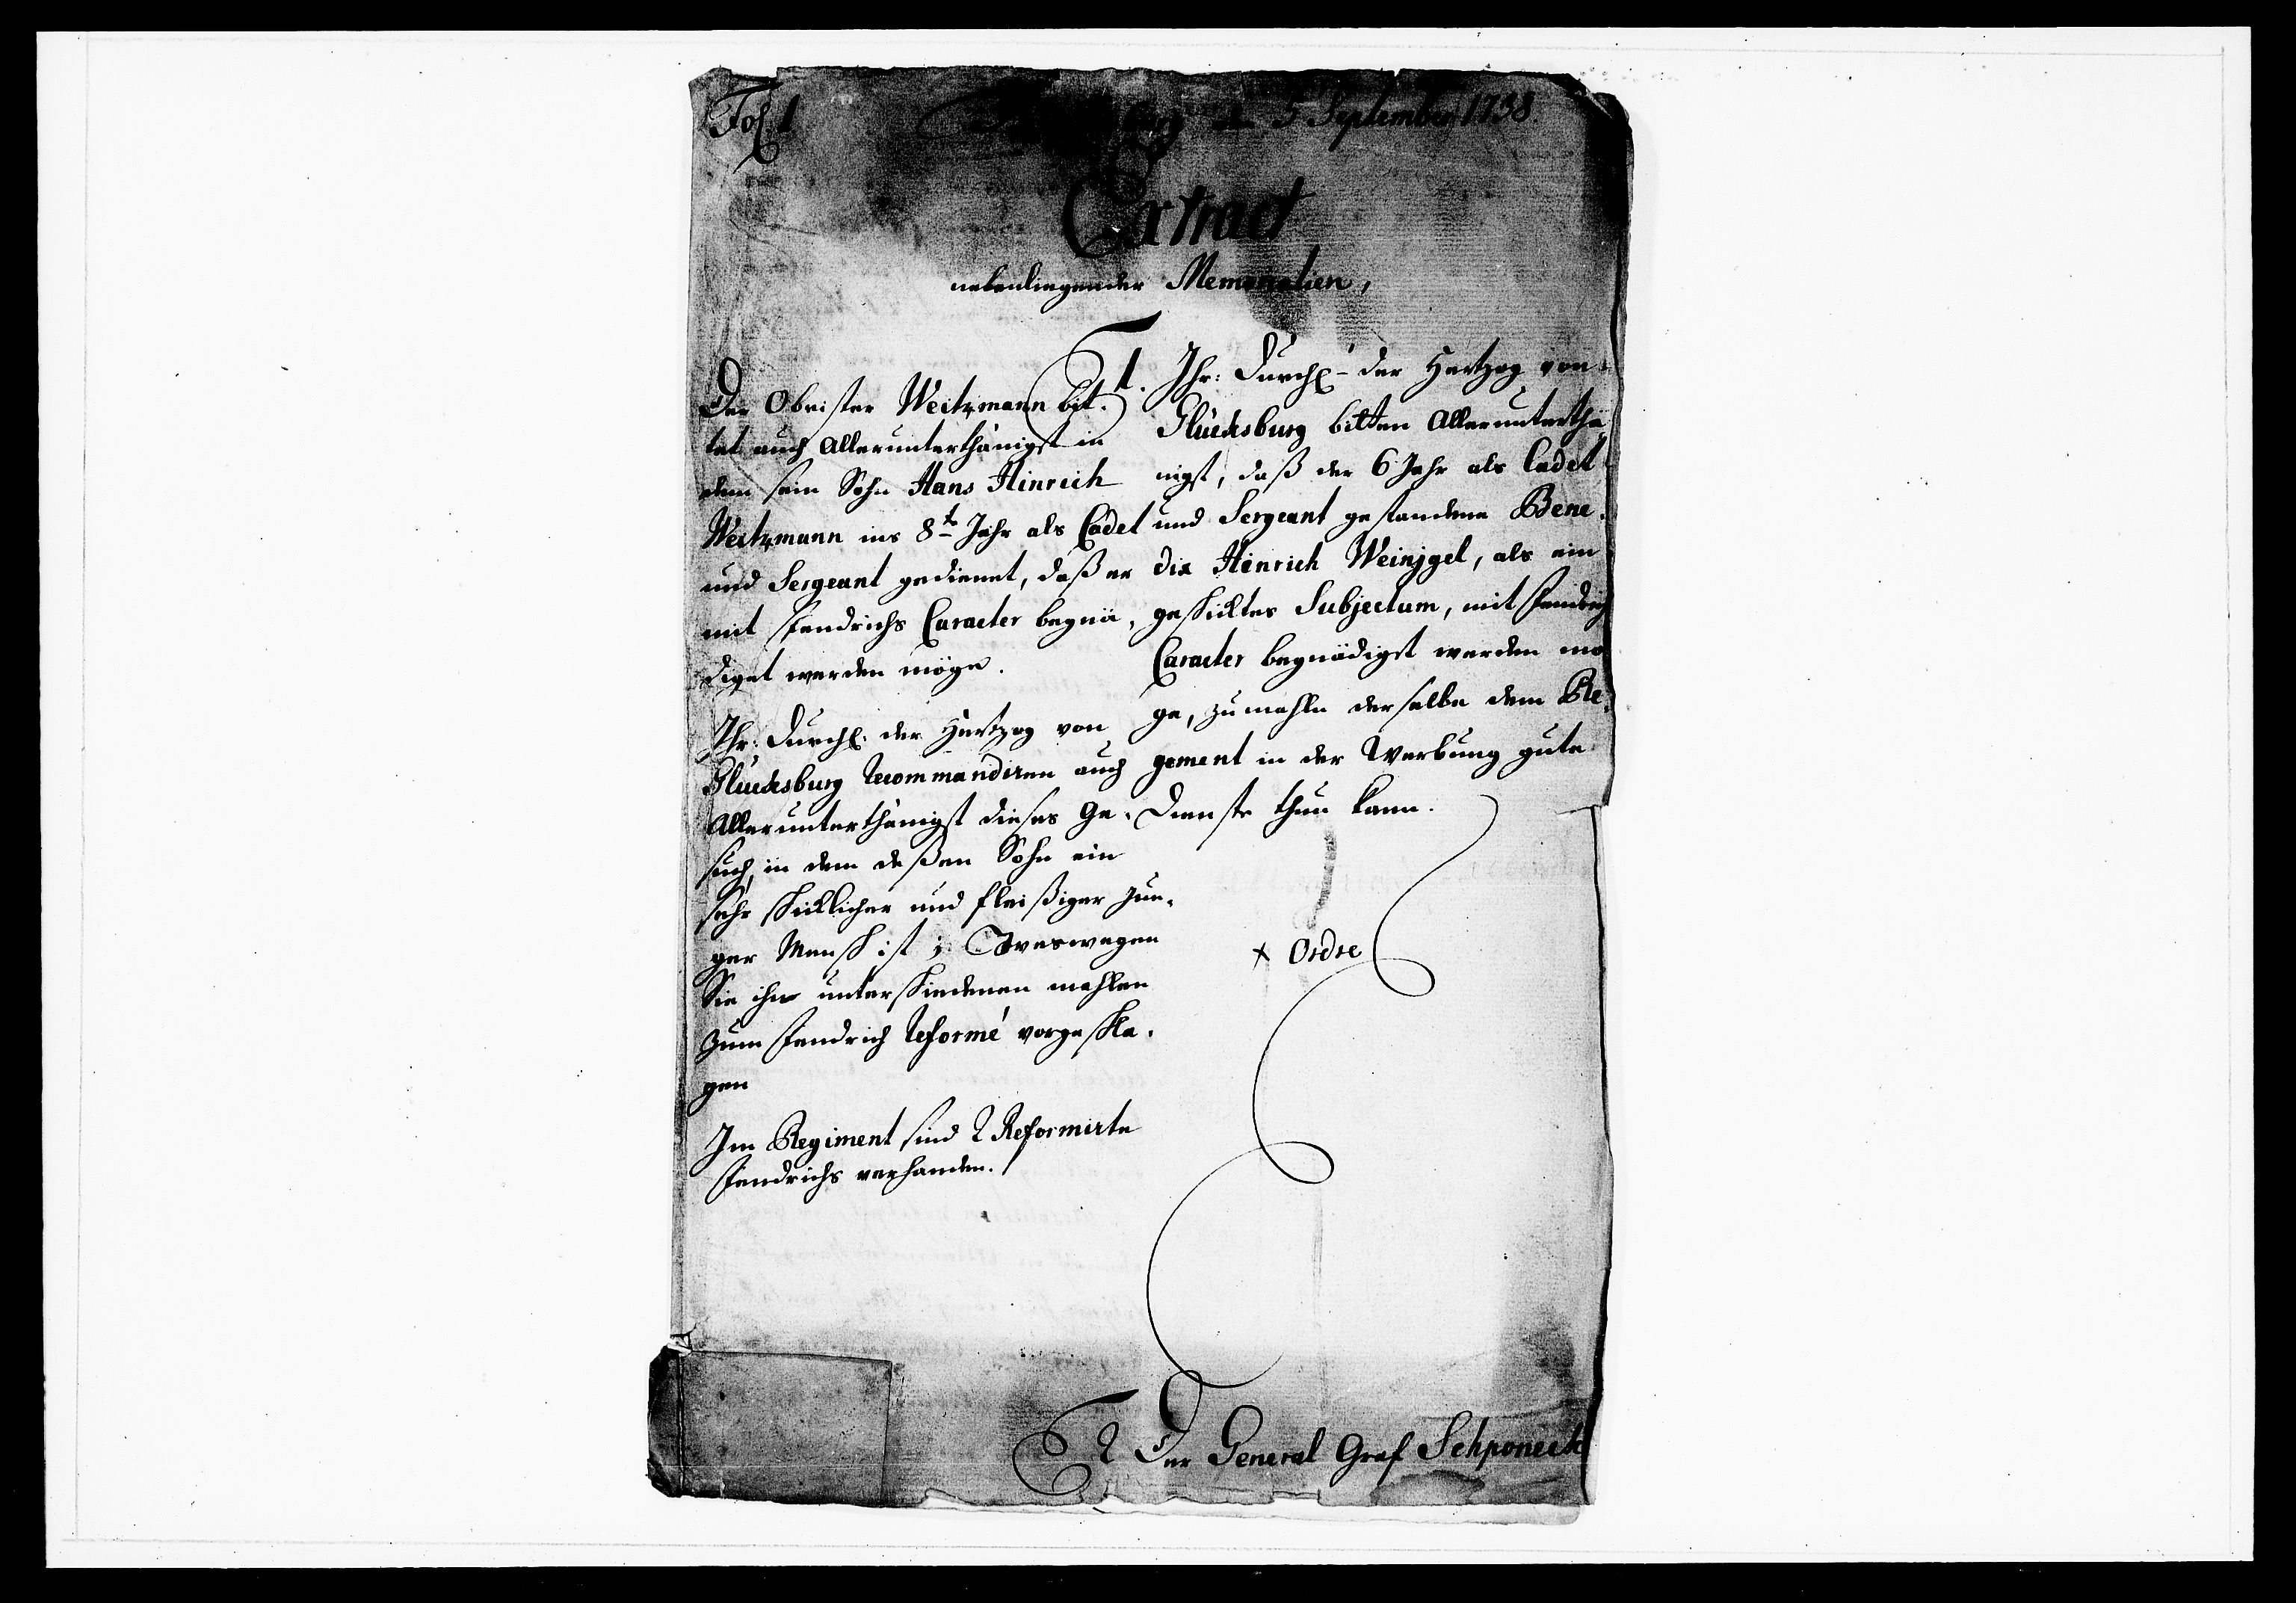 Fol. 1
den 5 September 1738.
Extract
nebenliegender Memorialien,
Der Obrister Weitzmann bit-
tet auch Allerunterthänigst in
dem sein Sohn Hans Hinrich
Weitzmann ins 8te Jahr als Cadet
und Sergeant gedienet, daß er
mit Fendrichs Caracter begnä-
diget werden möge.
Ihr: Durchl: der Hertzog von
Glücksburg recommandiren auch
Allerunterthänigst dieses Ge-
such, in dem deßen Sohn ein
sehr schicklicher und fleißiger jun-
ger Mensch ist; Weswegen
Sie ihn unterschiedenen mahlen
zum Fendrich Reformé vorgeschla-
gen
Im Regiment sind 2 Reformirte
Fendrichs verhanden.
1. Ihr: Durchl: der Hertzog von
Glücksburg bitten Allerunterthä-
nigst, daß der 6 Jahr als Cadet
und Sergeant gestandene Bene-
dix Hinrich Weinjgel, als ein
geschicktes Subjectum, mit Fendrich
Caracter begnädigst werden mö-
ge, zumahln derselbe dem Re-
gement in der Werbung gute
Dienste thun kann.
x Ordre
2 Der General Graf Schponeck